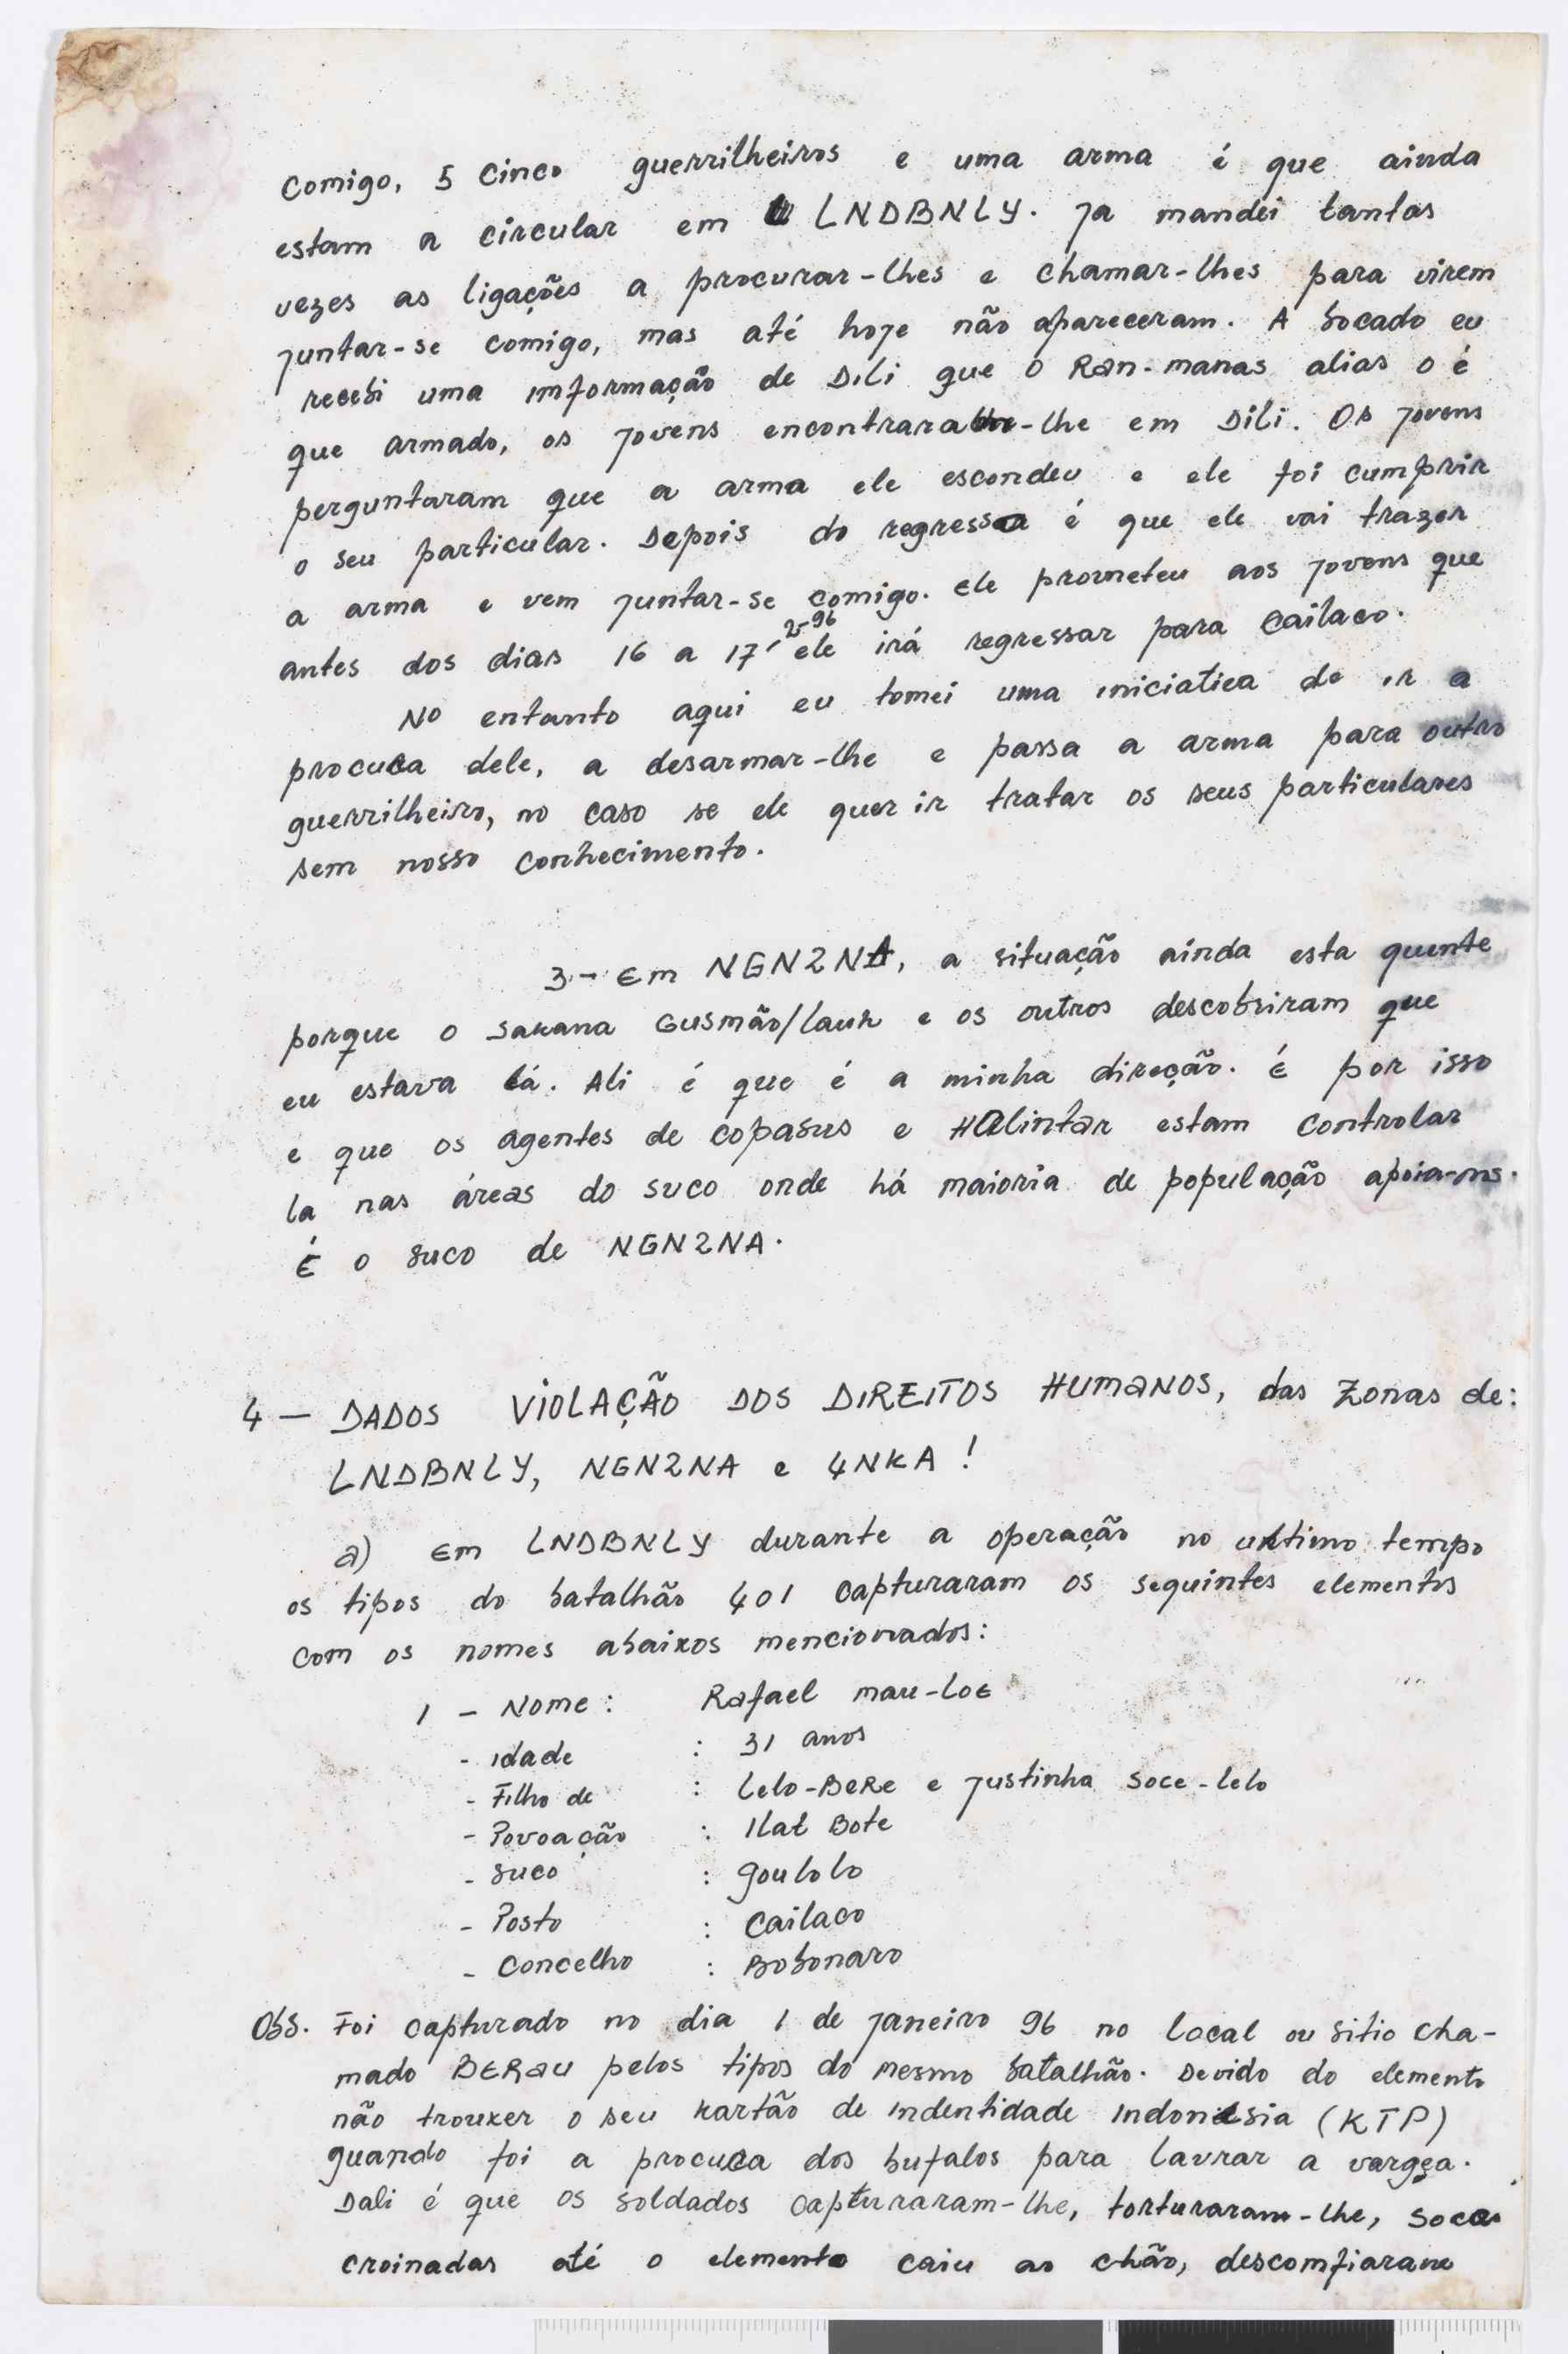 comigo, 5 cinco guerrilheiros e uma arma é que ainda
estam a circular em LNDBNLY. Ja mandei tantas
vezes as ligações a procurar-lhes e chamar-lhes para virem
juntar-se comigo, mas até hoje não apareceram. A bocado eu
recebi uma imformação de Dili que o Ran-manas alias o é
que armado, os jovens encontraram-lhe em Dili. Os jovens
perguntaram que a arma ele escondeu e ele foi cumprir
o seu particular. Depois do regresso é que ele vai trazer
a arma e vem juntar-se comigo. Ele prometeu aos jovens que
antes dos dias 16 a 17-2-96 ele irá regressar para Cailaco.
No entanto aqui eu tomei uma iniciativa de ir a
procura dele, a desarmar-lhe e passa a arma para outro
guerrilheiro, no caso se ele quer ir tratar os seus particulares
sem nosso conhecimento.
3 - Em NGN2NA, a situação ainda esta quente
porque o Sakana Gusmão/ e os outros descobriram que
eu estava lá. Ali é que é a minha direção. É por isso
e que os agentes de copasus e Halintar estam controlar
la nas áreas do suco onde há maioria de população apoia-nos.
É o suco de NGN2NA.
4 - DADOS VIOLAÇÃO DOS DIREITOS HUMANOS, das Zonas de:
LNDBNLY, NGN2NA e 4NKA!
a) Em LNDBNLY durante a operação no ultimo tempo
os tipos do batalhão 401 capturaram os seguintes elementos
com os nomes abaixos mencionados:
1 - Nome: Rafael mau-Loe
- idade : 31 anos
- Filho de : Lelo-Bere e Justinha Soce-lelo
- Povoação : Ilat Bote
- Suco : goulolo
- Posto : Cailaco
- Concelho : Bobonaro
Obs. Foi capturado no dia 1 de Janeiro 96 no local ou sitio cha-
mado BERau pelos tipos do mesmo batalhão. Devido do elemento
não trouxer o seu kartão de indentidade indonésia (KTP)
quando foi a procura dos bufalos para lavrar a vargea.
Dali é que os soldados capturaram-lhe, torturaram-lhe, socas
croinadas até o elemento caiu ao chão, descomfiaram